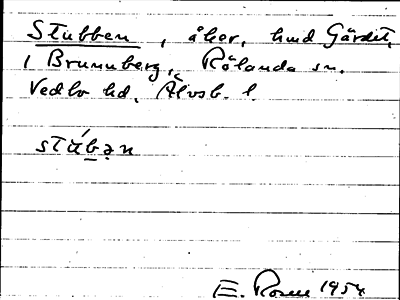 Stubben, åker, hmd Gärdet,
i Brunnberg, Rölanda sn.
Vedbo hd, Älvsb. l.
stúbən
E. Rosell 1954